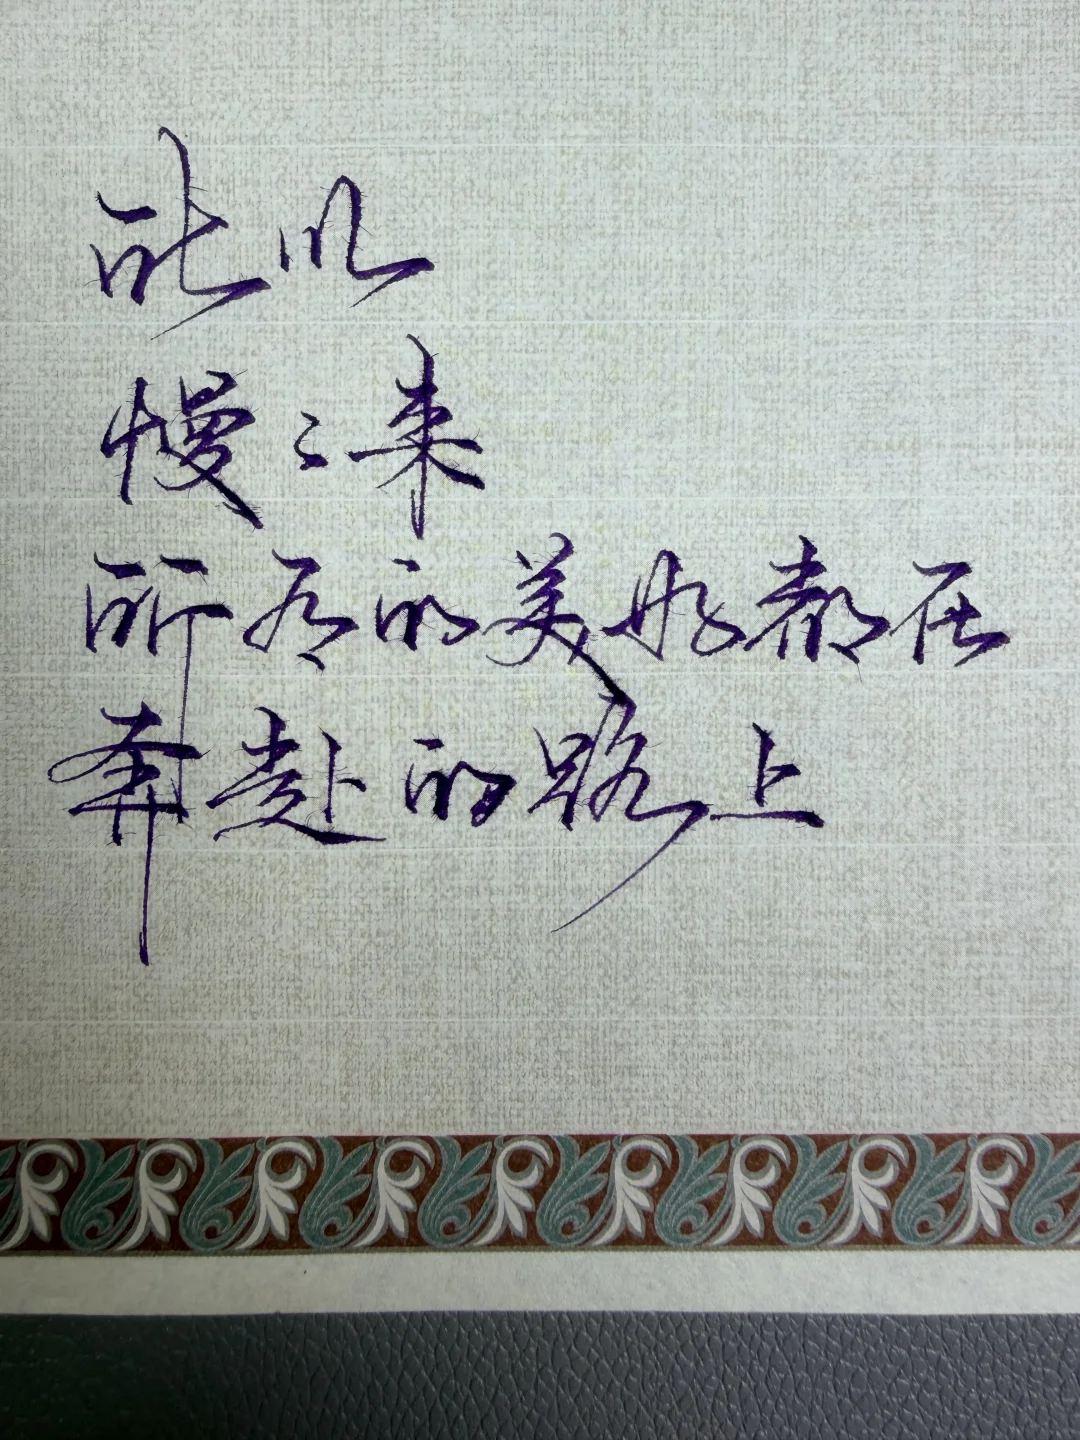 所以
慢々来
所有的美好都在
奔赴的路上